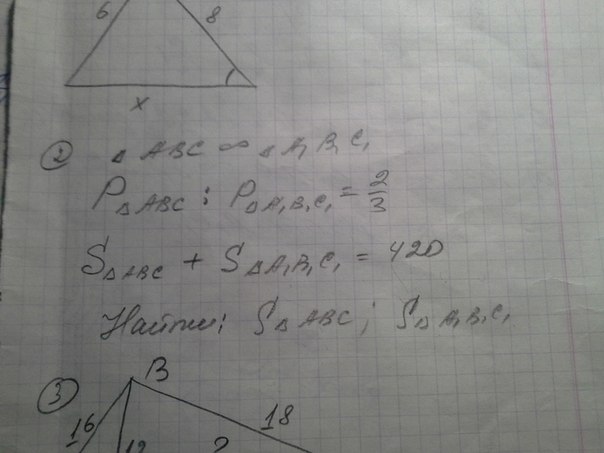 6 8
x
② △ABC ∞ △A₁B₁C₁
P△ABC : P△A₁B₁C₁ = 2/3
S△ABC + S△A₁B₁C₁ = 420
Найти: S△ABC; S△A₁B₁C₁
③ B
16 18
12 ?